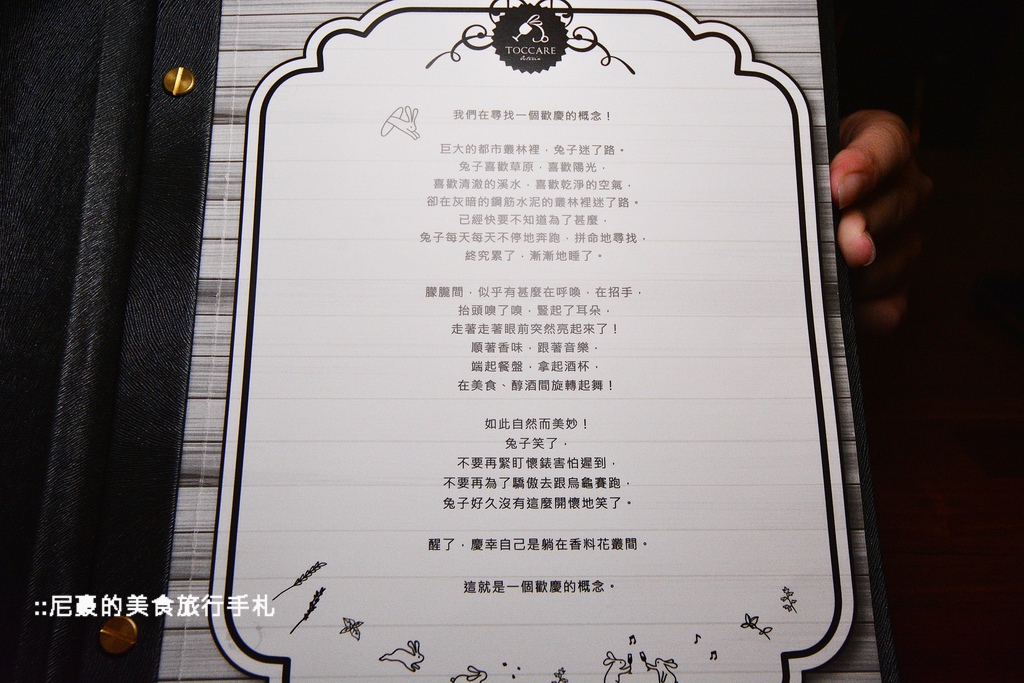 TOCCARE
我們在尋找一個歡慶的概念！
巨大的都市叢林裡，兔子迷了路。
兔子喜歡草原，喜歡陽光，
喜歡清澈的溪水，喜歡乾淨的空氣，
卻在灰暗的鋼筋水泥的叢林裡迷了路。
已經快要不知道為了甚麼，
兔子每天每天不停地奔跑，拼命地尋找，
終究累了，漸漸地睡了。
朦朧間，似乎有甚麼在呼喚，在招手，
抬頭嗅了嗅，豎起了耳朵，
走著走著眼前突然亮起來了！
順著香味，跟著音樂，
端起餐盤，拿起酒杯，
在美食、醇酒間旋轉起舞！
如此自然而美妙！
兔子笑了，
不要再緊盯懷錶害怕遲到，
不要再為了驕傲去跟烏龜賽跑，
兔子好久沒有這麼開懷地笑了。
醒了，慶幸自己是躺在香料花叢間。
這就是一個歡慶的概念。
::尼豪的美食旅行手札